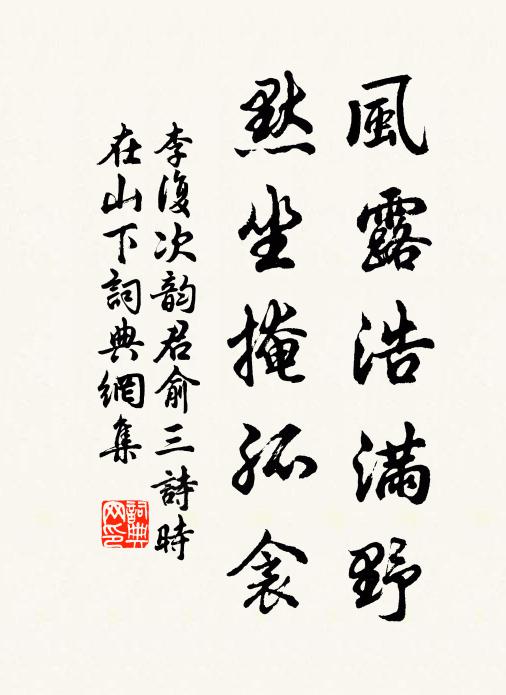 風露浩滿野
默坐掩孤衾
李復次韵君俞三詩時
在山下詞典網集
詞典
网印